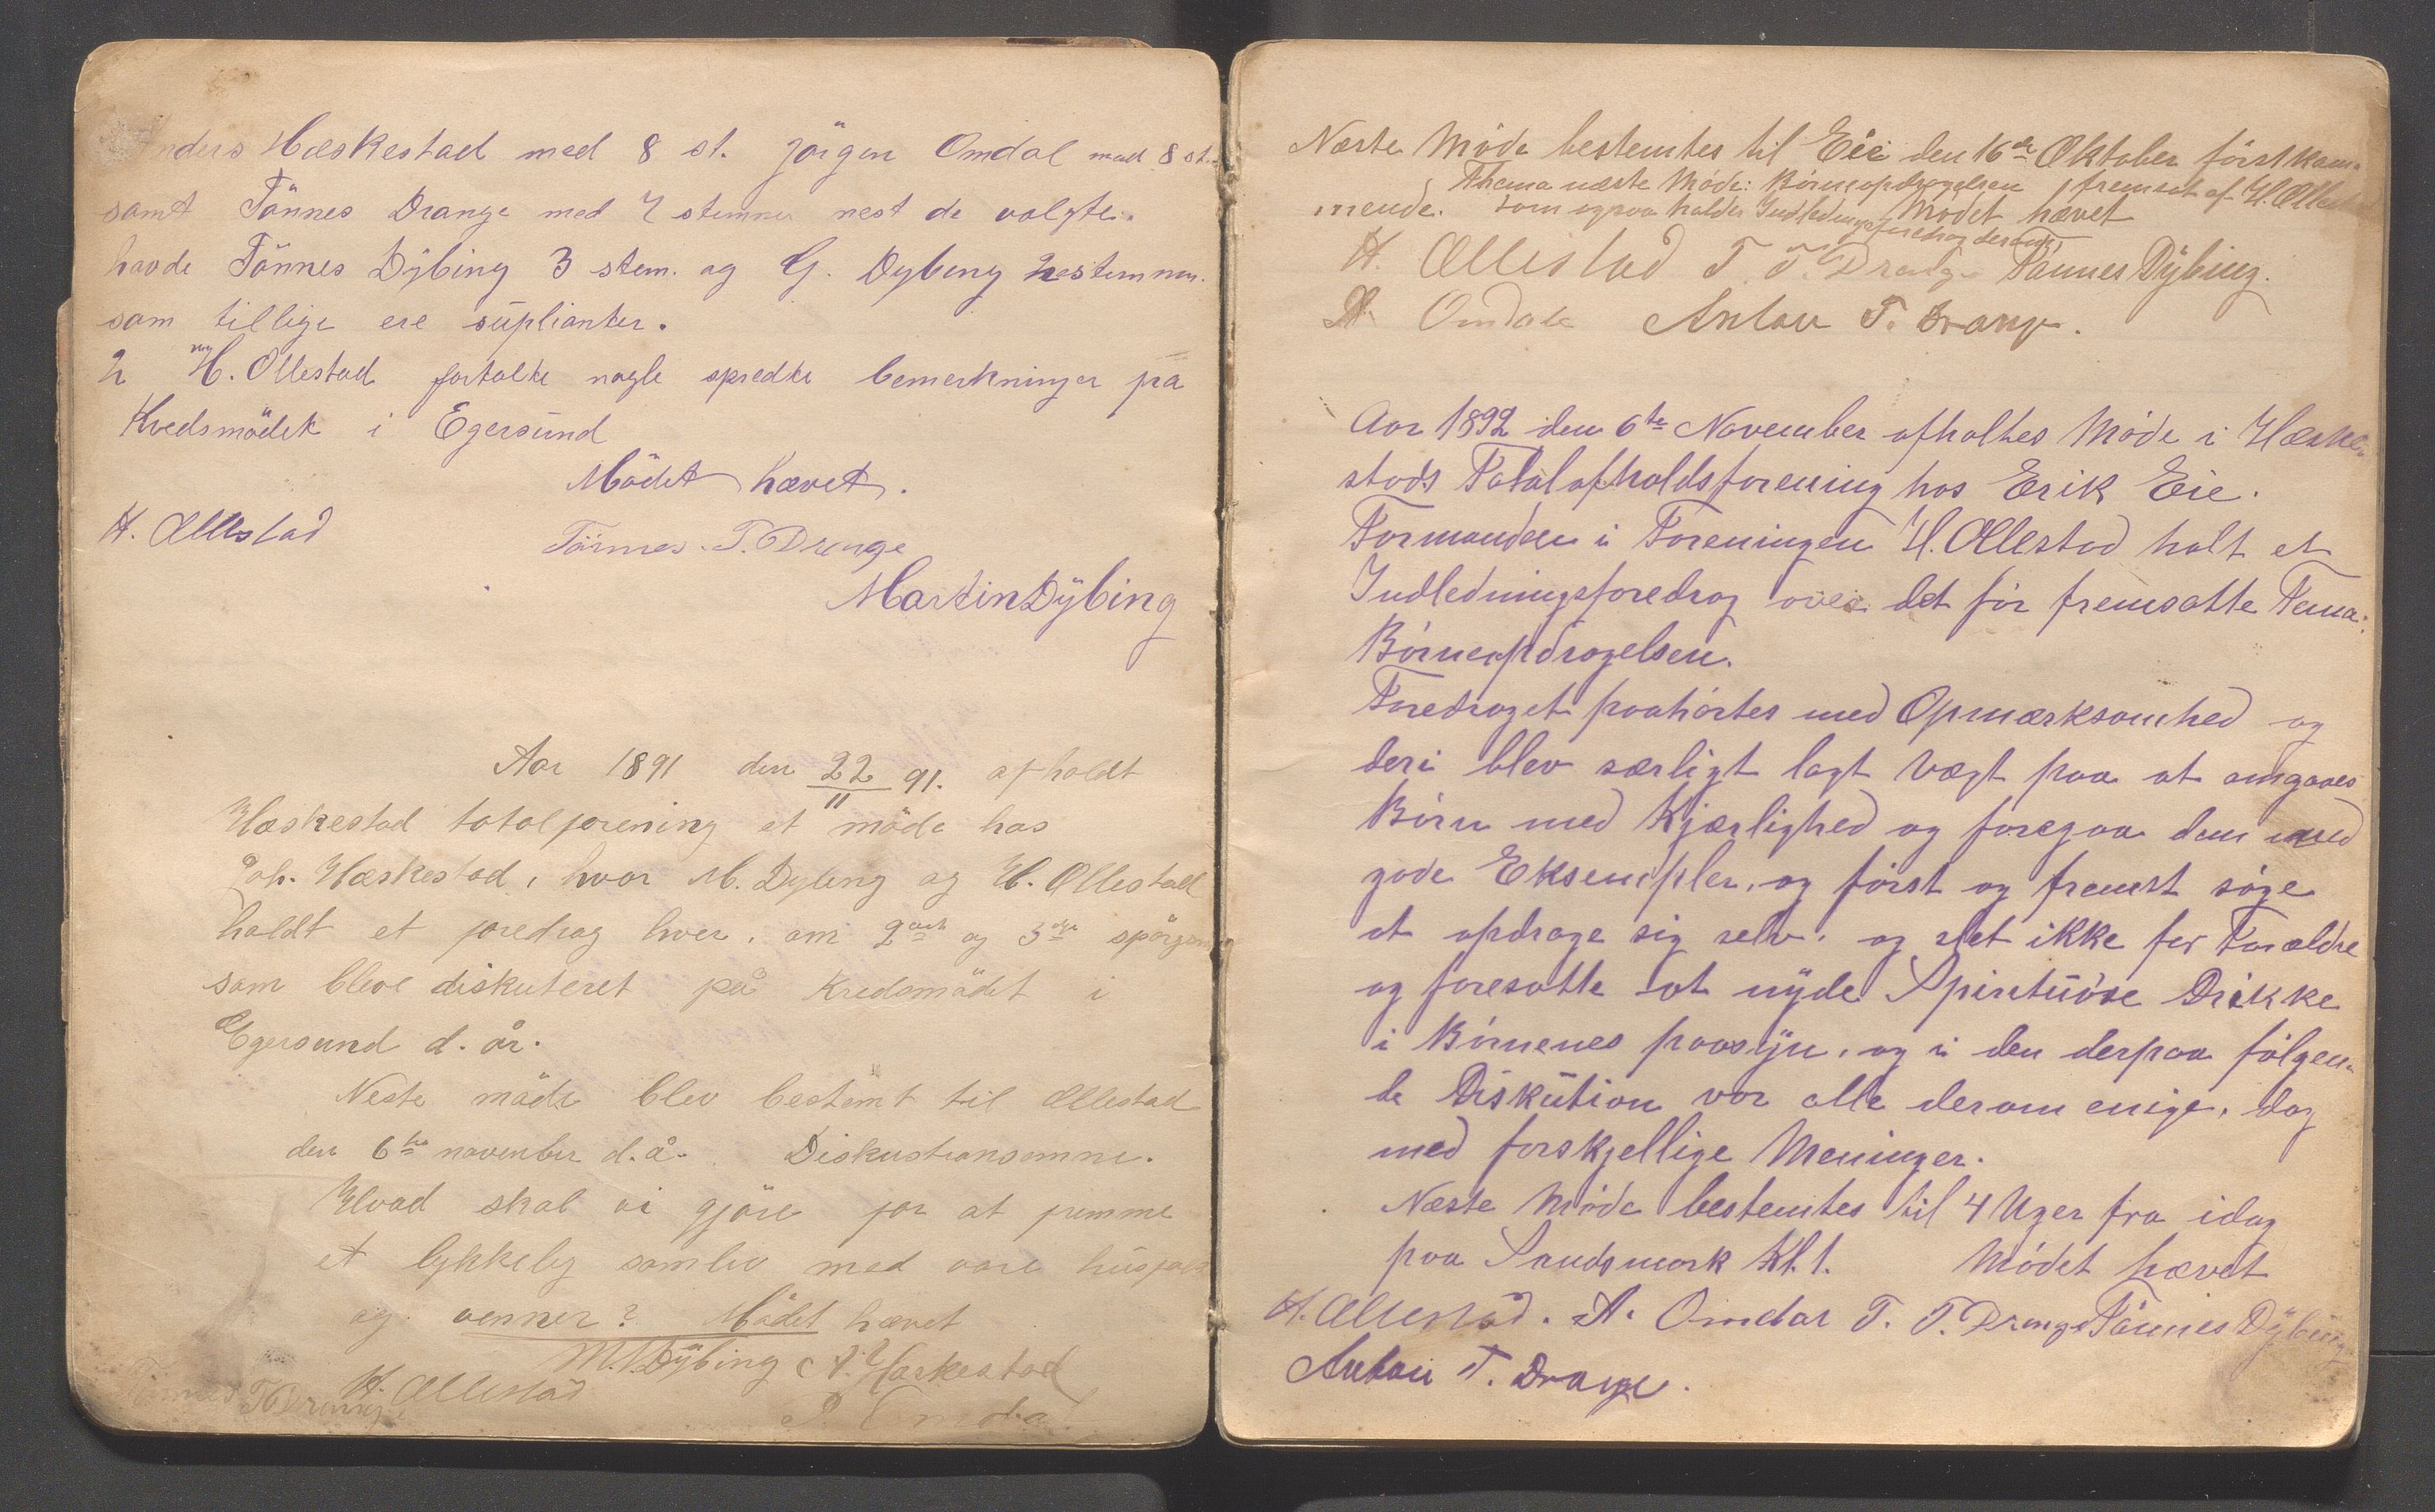 Anders Hæskestad med 8 st. Jörgen Omdal med 8 st.
samt Tönnes Drange med 7 stemmer nest de valgte.
havde Tönnes Dÿbing 3 stem. og G. Dybing 2 stemmer.
som tillige ere süplianter.
2 H. Ollestad fortalte nogle spredte bemerkninger på
Kredsmödet i Egersund
Mödet hævet.
H. Ollestad Tönnes. T. Drange
Martin Dÿbing
Aar 1891 den 22/11 91. afholdt
Hæskestad totalforening et möde hos
Joh. Hæskestad, hvor M. Dybing og H. Ollestad
holdt et foredrag hver. om 2det og 3die
som bleve diskuteret på Kredsmödet i
Egersund d. år.
Neste möde blev bestemt til Ollestad
den 6te november d. å. Diskustionsemne.
Hvad skal vi gjöre for at fremme
et lykkelig samliv med vore
og venner? Mödet hævet
M. Dÿbing A. Hæskestad
Tönnes T Drange H. Ollestad
Omdal
Næste Möde bestemtes til Eie den 16de Oktober förstkom-
mende. Thema næste Möde: Börneopdragelsen fremsat af H. Ollestad
som ogsaa holder Indledningsforedrag derom. Mödet hævet
H. Ollestad T. T. Drange Tönnes Dÿbing.
A. Omdal Anton T. Drange.
Aar 1892 den 6te November afholtes Möde i Hæske-
stads Totalafholdsforening hos Erik Eie.
Formanden i Foreningen H. Ollestad holt et
Indledningsforedrag over det för fremsatte Tema:
Börneopdragelsen.
Foredraget paahörtes med Opmærksomhed og
deri blev særligt lagt Vægt paa at omgaaes
Börn med Kjærlighed og foregaa dem med
gode Eksempler, og först og fremst söge
at opdrage sig selv. og slet ikke for Forældre
og foresatte at nÿde Spirituöse Drikke
i Börnenes paasÿn, og i den derpaa fölgen-
de Diskution var alle derom enige, dog
med forskjellige Meninger.
Næste Möde bestemtes til 4 Uger fra idag
paa Sandsmark Kl. 1. Mödet hævet
H. Ollestad. A. Omdal T. T. Drange Tönnes Dÿbing
Anton T. Drange.